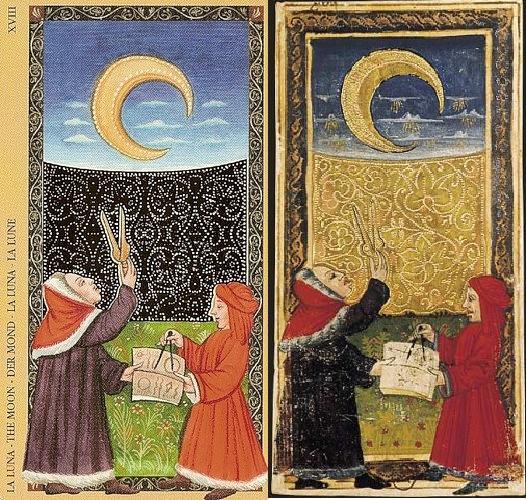 XVIII
LA LUNA - THE MOON - DER MOND - LA LUNA - LA LUNE